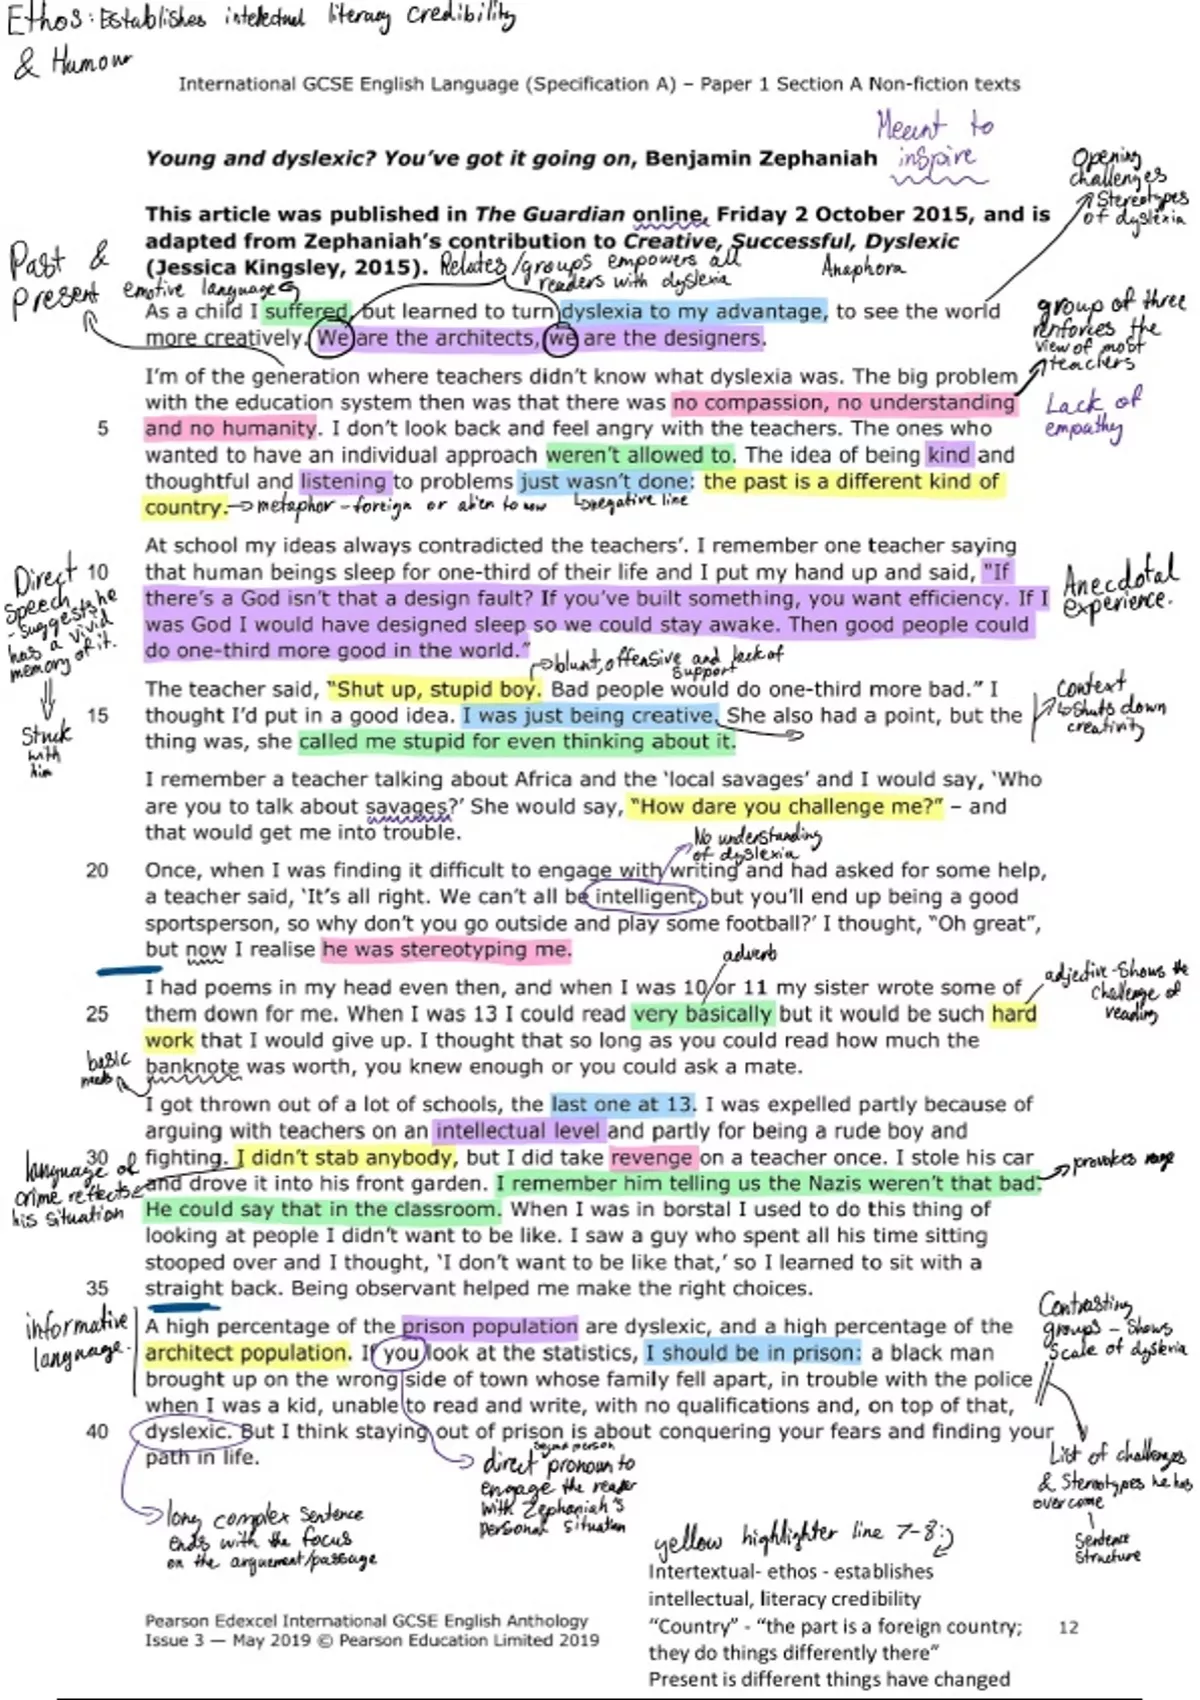 Ethos: Establishes intellectual literary credibility
& Humour
International GCSE English Language (Specification A) – Paper 1 Section A Non-fiction texts
Meant to
inspire
Young and dyslexic? You’ve got it going on, Benjamin Zephaniah
Opening
challenges
Stereotypes
of dyslexia
This article was published in The Guardian online, Friday 2 October 2015, and is
adapted from Zephaniah’s contribution to Creative, Successful, Dyslexic
(Jessica Kingsley, 2015).
Relates/groups empowers all
readers with dyslexia
Anaphora
Past &
Present
emotive language
As a child I suffered, but learned to turn dyslexia to my advantage, to see the world
more creatively. We are the architects, we are the designers.
group of three
renforces the
view of most
teachers
I’m of the generation where teachers didn’t know what dyslexia was. The big problem
with the education system then was that there was no compassion, no understanding
5 and no humanity. I don’t look back and feel angry with the teachers. The ones who
wanted to have an individual approach weren’t allowed to. The idea of being kind and
thoughtful and listening to problems just wasn’t done: the past is a different kind of
country.
Lack of
empathy
metaphor - foreign or alien to now
negative line
At school my ideas always contradicted the teachers’. I remember one teacher saying
10 that human beings sleep for one-third of their life and I put my hand up and said, “If
there’s a God isn’t that a design fault? If you’ve built something, you want efficiency. If I
was God I would have designed sleep so we could stay awake. Then good people could
do one-third more good in the world.”
Direct
Speech
- suggests he
has a vivid
memory of it.
Stuck
with
him
Anecdotal
experience.
blunt, offensive and lack of
support
The teacher said, “Shut up, stupid boy. Bad people would do one-third more bad.” I
15 thought I’d put in a good idea. I was just being creative. She also had a point, but the
thing was, she called me stupid for even thinking about it.
Context
Shuts down
creativity
I remember a teacher talking about Africa and the ‘local savages’ and I would say, ‘Who
are you to talk about savages?’ She would say, “How dare you challenge me?” – and
that would get me into trouble.
No understanding
of dyslexia
20 Once, when I was finding it difficult to engage with writing and had asked for some help,
a teacher said, ‘It’s all right. We can’t all be intelligent, but you’ll end up being a good
sportsperson, so why don’t you go outside and play some football?’ I thought, “Oh great”,
but now I realise he was stereotyping me.
adverb
I had poems in my head even then, and when I was 10 or 11 my sister wrote some of
25 them down for me. When I was 13 I could read very basically but it would be such hard
work that I would give up. I thought that so long as you could read how much the
banknote was worth, you knew enough or you could ask a mate.
adjective-shows the
challenge of
reading
basic
needs
I got thrown out of a lot of schools, the last one at 13. I was expelled partly because of
arguing with teachers on an intellectual level and partly for being a rude boy and
30 fighting. I didn’t stab anybody, but I did take revenge on a teacher once. I stole his car
and drove it into his front garden. I remember him telling us the Nazis weren’t that bad.
He could say that in the classroom. When I was in borstal I used to do this thing of
looking at people I didn’t want to be like. I saw a guy who spent all his time sitting
stooped over and I thought, ‘I don’t want to be like that,’ so I learned to sit with a
35 straight back. Being observant helped me make the right choices.
language of
crime reflects
his situation
provokes rage
informative
language.
A high percentage of the prison population are dyslexic, and a high percentage of the
architect population. If you look at the statistics, I should be in prison: a black man
brought up on the wrong side of town whose family fell apart, in trouble with the police
when I was a kid, unable to read and write, with no qualifications and, on top of that,
40 dyslexic. But I think staying out of prison is about conquering your fears and finding your
path in life.
Contrasting
groups - Shows
scale of dyslexia
List of challenges
& Stereotypes he has
overcome
Sentence
Structure
long complex sentence
ends with the focus
on the arguement/passage
second person
direct pronoun to
engage the reader
with Zephaniah's
personal situation
yellow highlighter line 7-8:
Intertextual- ethos - establishes
intellectual, literacy credibility
“Country” - “the part is a foreign country;
they do things differently there”
Present is different things have changed
Pearson Edexcel International GCSE English Anthology
Issue 3 — May 2019 © Pearson Education Limited 2019
12